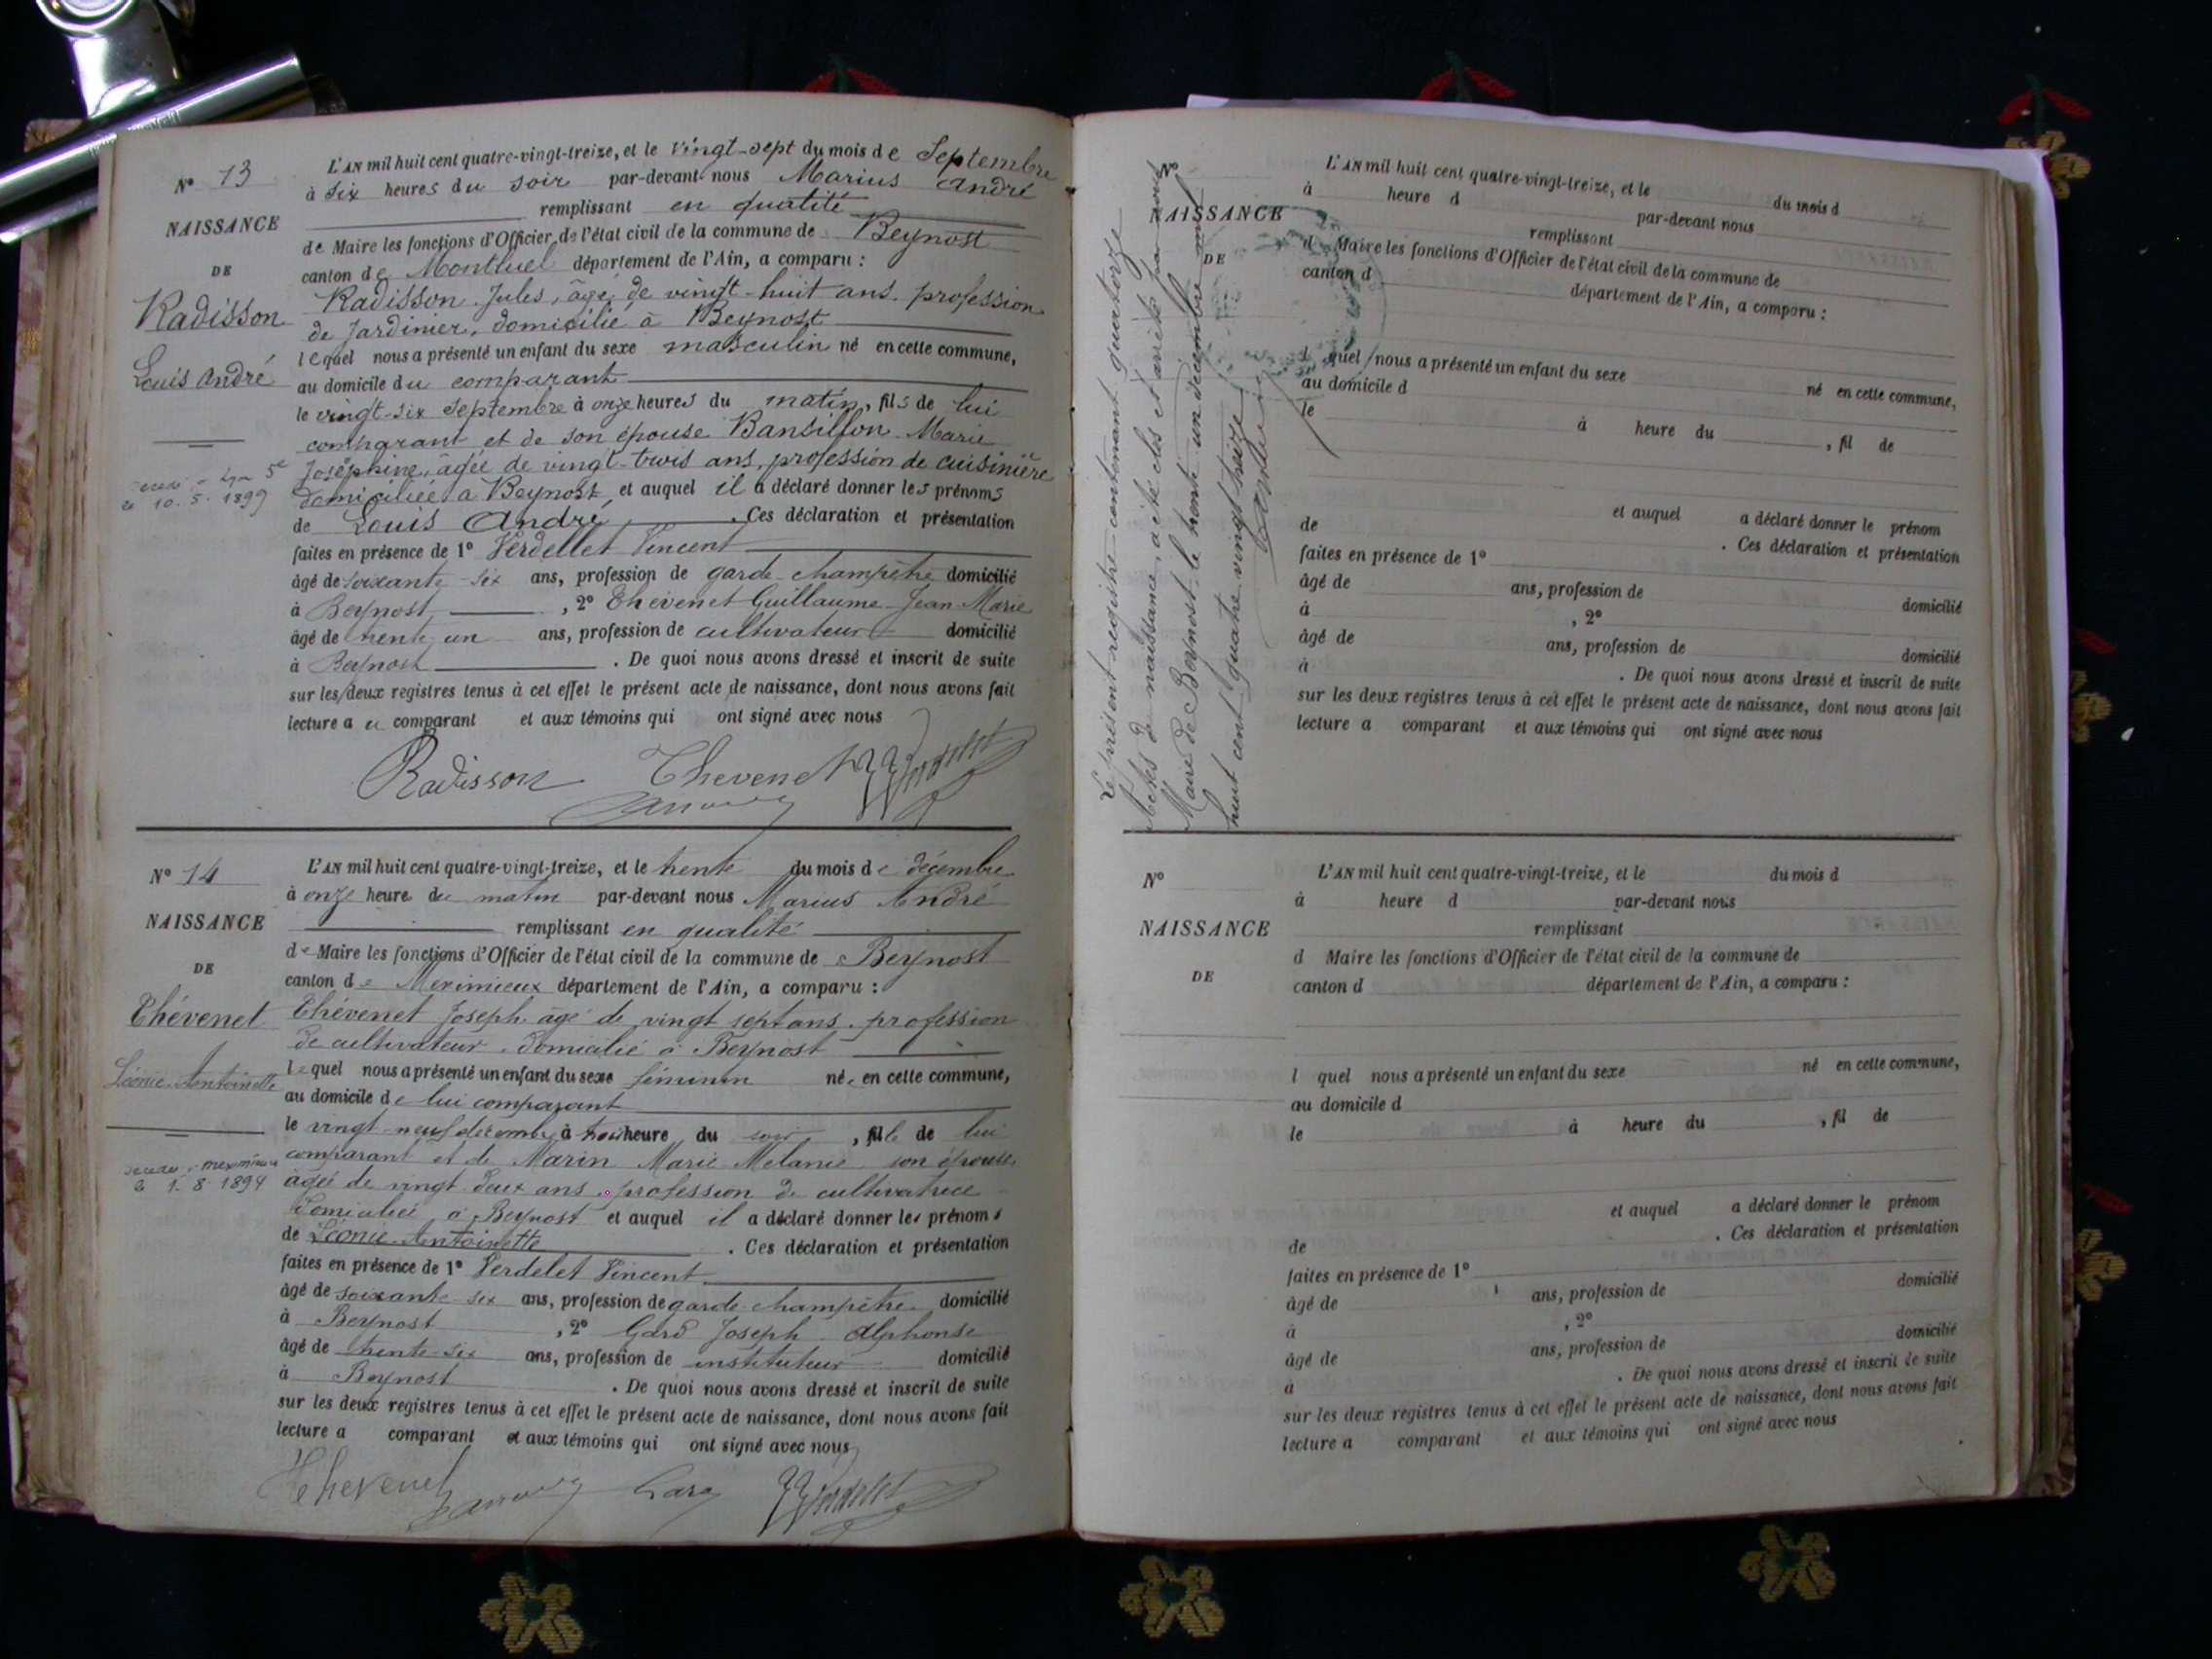 N° 13
NAISSANCE
DE
Radisson
Louis André
décédé à Lyon 5e
le 10.5.1899
L'AN mil huit cent quatre-vingt-treize, et le vingt-sept du mois de Septembre
à six heures du soir par-devant nous Marius André
remplissant en qualité
de Maire les fonctions d'Officier de l'état civil de la commune de Beynost
canton de Montluel département de l'Ain, a comparu :
Radisson Jules, âgé de vingt-huit ans, profession
de Jardinier, domicilié à Beynost
lequel nous a présenté un enfant du sexe masculin né en cette commune,
au domicile du comparant
le vingt-six Septembre à onze heures du matin, fils de lui
comparant et de son épouse Marie
Joséphine, âgée de vingt-trois ans, profession de cuisinière
domiciliée à Beynost et auquel il a déclaré donner les prénoms
de Louis André . Ces déclaration et présentation
faites en présence de 1° Verdellet Vincent
âgé de soixante-six ans, profession de garde-champêtre domicilié
à Beynost , 2° Thévenet Guillaume Jean-Marie
âgé de trente un ans, profession de cultivateur domicilié
à Beynost . De quoi nous avons dressé et inscrit de suite
sur les deux registres tenus à cet effet le présent acte de naissance, dont nous avons fait
lecture au comparant et aux témoins qui ont signé avec nous
Radisson Thevenet Verdelet
N° 14
NAISSANCE
DE
Thévenet
Léonie Antoinette
décédée à meximieux
le 1.8.1894
L'AN mil huit cent quatre-vingt-treize, et le trente du mois de décembre
à onze heure du matin par-devant nous Marius André
remplissant en qualité
de Maire les fonctions d'Officier de l'état civil de la commune de Beynost
canton de Meximieux département de l'Ain, a comparu :
Thévenet Joseph âgé de vingt sept ans, profession
de cultivateur domicilié à Beynost
lequel nous a présenté un enfant du sexe féminin née en cette commune,
au domicile de lui comparant
le vingt-neuf décembre à trois heure du soir , fille de lui
comparant et de Marin Marie Mélanie son épouse
âgée de vingt deux ans profession de cultivatrice
domiciliée à Beynost et auquel il a déclaré donner les prénoms
de Léonie Antoinette . Ces déclaration et présentation
faites en présence de 1° Verdelet Vincent
âgé de soixante six ans, profession de garde-champêtre domicilié
à Beynost , 2° Gard Joseph Alphonse
âgé de trente-six ans, profession de instituteur domicilié
à Beynost . De quoi nous avons dressé et inscrit de suite
sur les deux registres tenus à cet effet le présent acte de naissance, dont nous avons fait
lecture a comparant et aux témoins qui ont signé avec nous
Thevenet Gard Verdelet
Le présent registre contenant quatorze
Actes de naissance, a été clos et arrêté par nous
Maire de Beynost le trente un décembre mil
huit cent quatre vingt treize
N°
NAISSANCE
DE
L'AN mil huit cent quatre-vingt-treize, et le du mois d
à heure d par-devant nous
remplissant
d Maire les fonctions d'Officier de l'état civil de la commune de
canton d département de l'Ain, a comparu :
l quel nous a présenté un enfant du sexe né en cette commune,
au domicile d
le à heure du , fil de
et auquel a déclaré donner le prénom
de . Ces déclaration et présentation
faites en présence de 1°
âgé de ans, profession de domicilié
à , 2°
âgé de ans, profession de domicilié
à . De quoi nous avons dressé et inscrit de suite
sur les deux registres tenus à cet effet le présent acte de naissance, dont nous avons fait
lecture a comparant et aux témoins qui ont signé avec nous
N°
NAISSANCE
DE
L'AN mil huit cent quatre-vingt-treize, et le du mois d
à heure d par-devant nous
remplissant
d Maire les fonctions d'Officier de l'état civil de la commune de
canton d département de l'Ain, a comparu :
l quel nous a présenté un enfant du sexe né en cette commune,
au domicile d
le à heure du , fil de
et auquel a déclaré donner le prénom
de . Ces déclaration et présentation
faites en présence de 1°
âgé de ans, profession de domicilié
à , 2°
âgé de ans, profession de domicilié
à . De quoi nous avons dressé et inscrit de suite
sur les deux registres tenus à cet effet le présent acte de naissance, dont nous avons fait
lecture a comparant et aux témoins qui ont signé avec nous